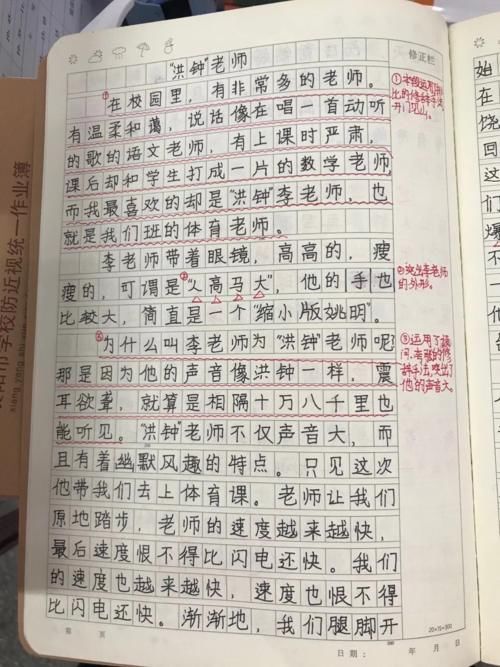 修正栏
“洪钟”老师
①在校园里，有非常多的老师。
有温柔和蔼，说话像在唱一首动听
的歌的语文老师，有上课时严肃，
课后却和学生打成一片的数学老师，
而我最喜欢的却是“洪钟”李老师，也
就是我们班的体育老师。
李老师带着眼镜，高高的，瘦
瘦的，可谓是②“人高马大”，他的手也
比较大，简直是一个“缩小版姚明”。
③为什么叫李老师为“洪钟”老师呢？
那是因为他的声音像洪钟一样，震
耳欲聋，就算是相隔十万八千里也
能听见。“洪钟”老师不仅声音大，而
且有着幽默风趣的特点。只见这次
他带我们去上体育课。老师让我们
原地踏步，老师的速度越来越快，
最后速度恨不得比闪电还快。我们
的速度也越来越快，速度也恨不得
比闪电还快。渐渐地，我们腿脚开
①本段运用排
比的修辞手法，
开门见山。
②突出李老师
的外形。
③运用了设
问、夸张的修
辞手法，突出了
他的声音大。
20×15=300
第 页
日期： 年 月 日
学校防近视统一作业簿